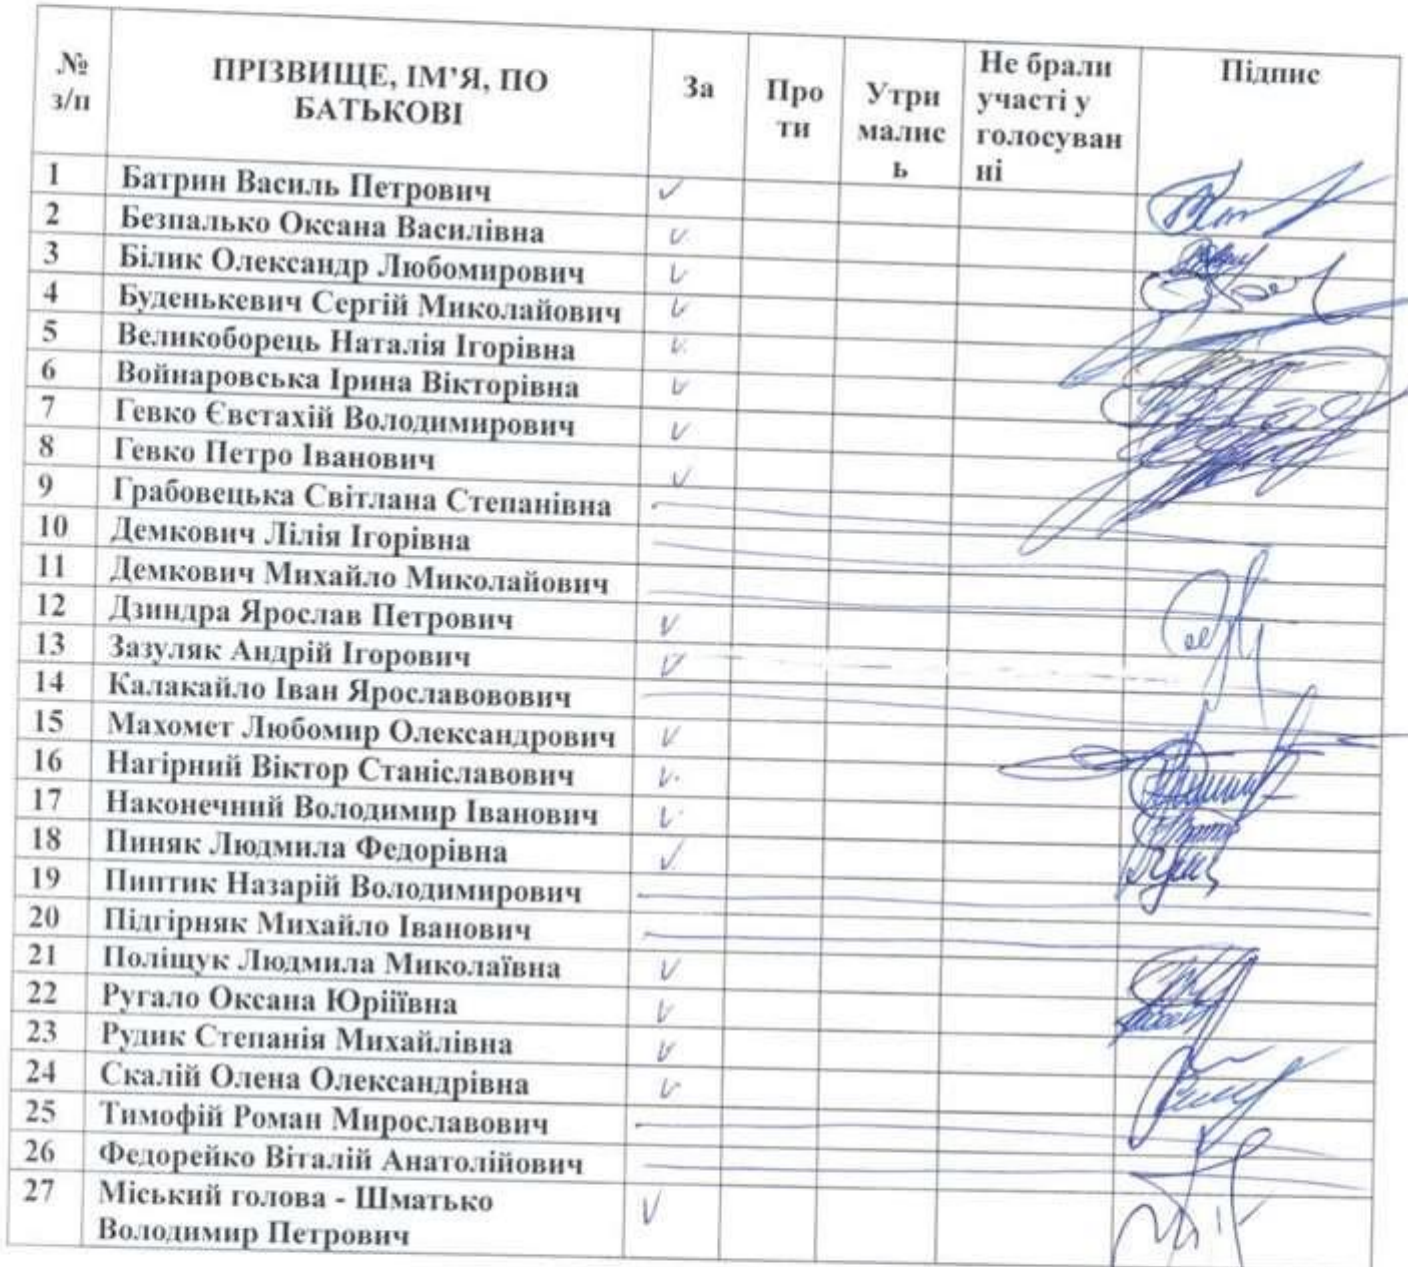 № з/п ПРІЗВИЩЕ, ІМ’Я, ПО БАТЬКОВІ За Проти Утрималисъ Не брали участі у голосуванні Підпис
1 Батрин Василь Петрович ✓
2 Безпалько Оксана Василівна ✓
3 Білик Олександр Любомирович ✓
4 Буденькевич Сергій Миколайович ✓
5 Великоборець Наталія Ігорівна ✓
6 Войнаровська Ірина Вікторівна ✓
7 Гевко Євстахій Володимирович ✓
8 Гевко Петро Іванович ✓
9 Грабовецька Світлана Степанівна
10 Демкович Лілія Ігорівна
11 Демкович Михайло Миколайович
12 Дзиндра Ярослав Петрович ✓
13 Зазуляк Андрій Ігорович ✓
14 Калакайло Іван Ярославовович
15 Махомет Любомир Олександрович ✓
16 Нагірний Віктор Станіславович ✓
17 Наконечний Володимир Іванович ✓
18 Пиняк Людмила Федорівна ✓
19 Пиптик Назарій Володимирович
20 Підгірняк Михайло Іванович
21 Поліщук Людмила Миколаївна ✓
22 Ругало Оксана Юріїївна ✓
23 Рудик Степанія Михайлівна ✓
24 Скалій Олена Олександрівна ✓
25 Тимофій Роман Мирославович
26 Федорейко Віталій Анатолійович
27 Міський голова - Шматько ✓
Володимир Петрович